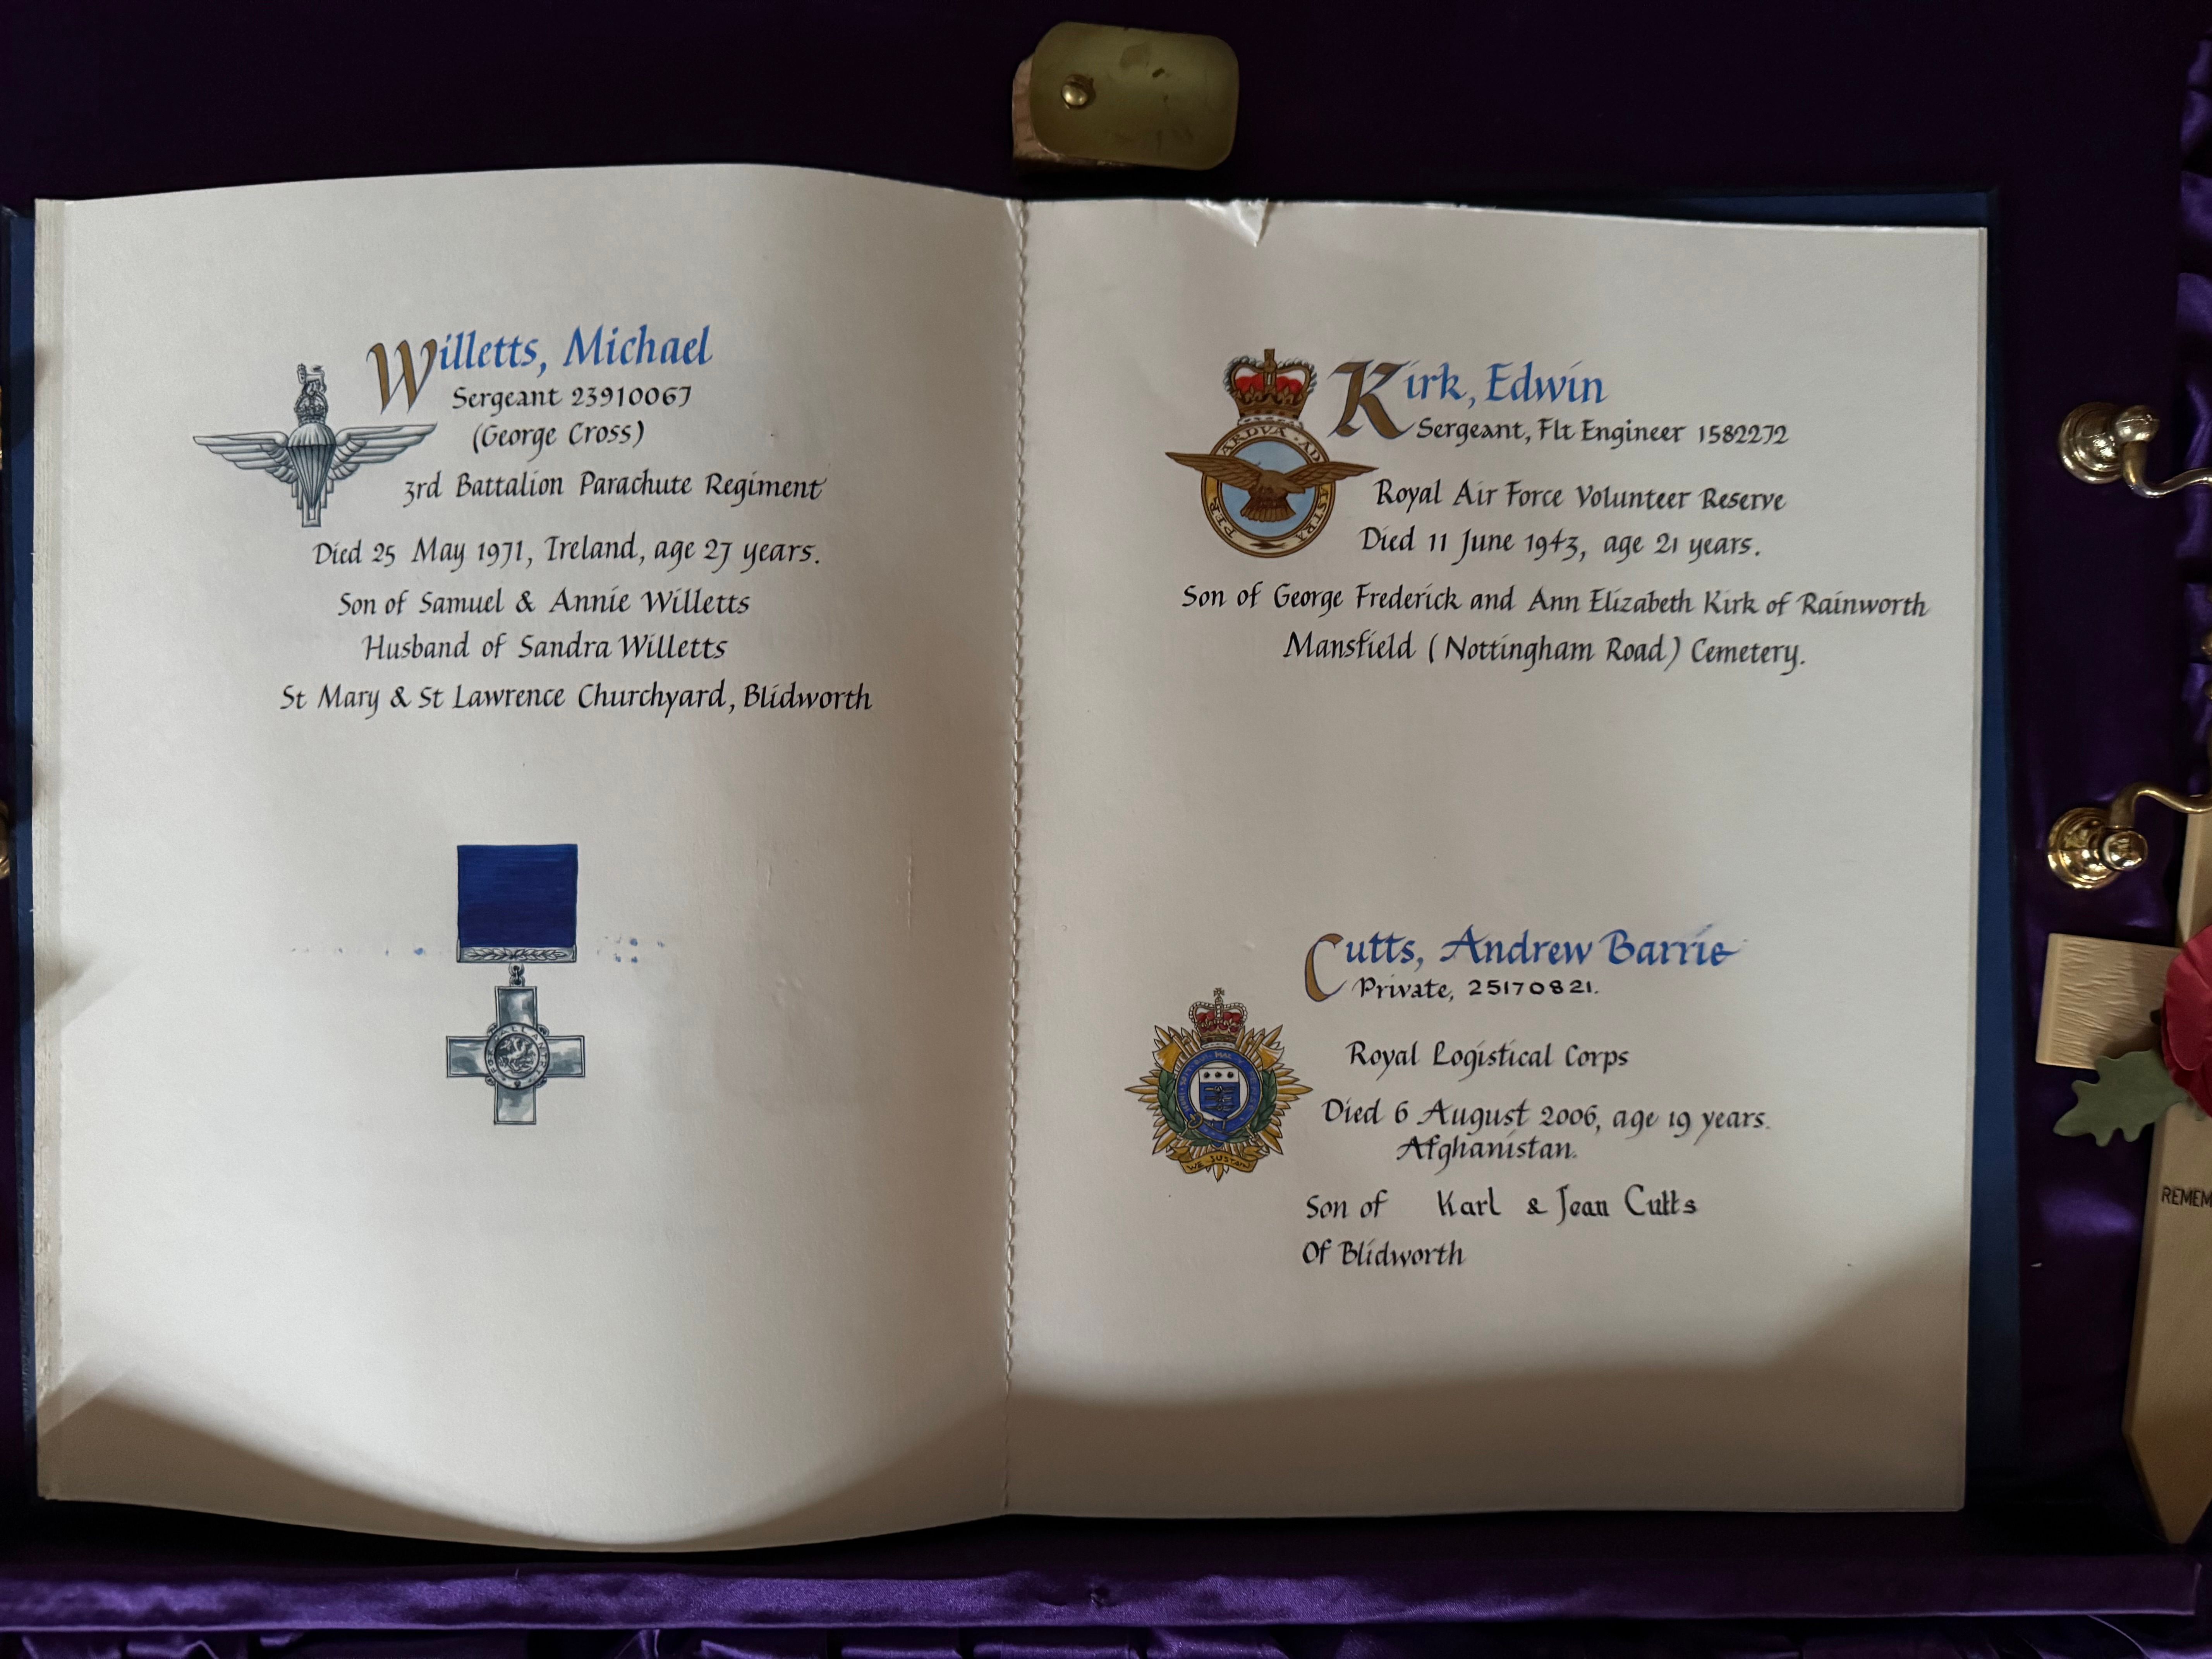 Willetts, Michael
Sergeant 23910067
(George Cross)
3rd Battalion Parachute Regiment
Died 25 May 1971, Ireland, age 27 years.
Son of Samuel & Annie Willetts
Husband of Sandra Willetts
St Mary & St Lawrence Churchyard, Blidworth
FOR GALLANTRY
Kirk, Edwin
Sergeant, Flt Engineer 1582272
PER ARDVA AD ASTRA
Royal Air Force Volunteer Reserve
Died 11 June 1943, age 21 years.
Son of George Frederick and Ann Elizabeth Kirk of Rainworth
Mansfield (Nottingham Road) Cemetery.
Cutts, Andrew Barrie
Private, 25170821.
Royal Logistical Corps
Died 6 August 2006, age 19 years.
Afghanistan.
Son of Karl & Jean Cutts
Of Blidworth
WE SUSTAIN
REMEM